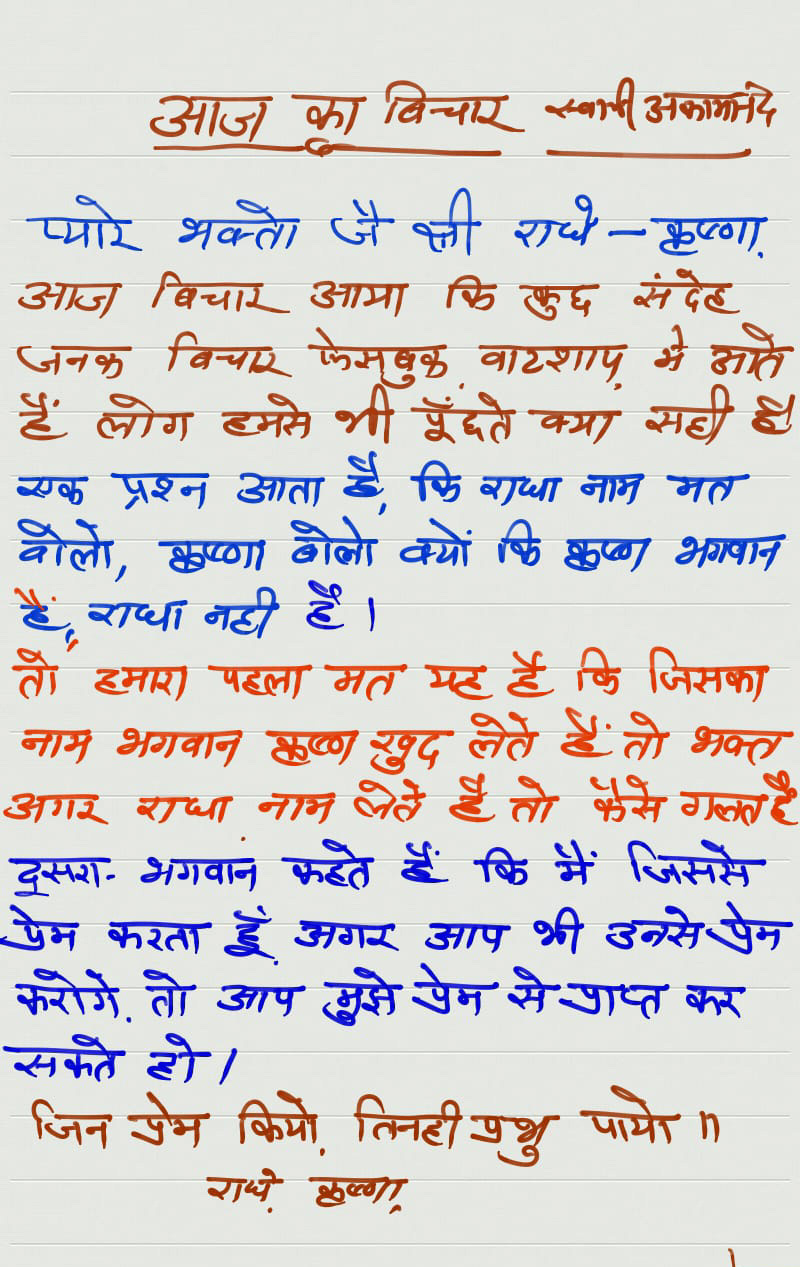 आज का विचार स्वामी अकामानंद
प्यारे भक्तो जै श्री राधे – कृष्णा,
आज विचार आया कि कुछ संदेह
जनक विचार फेसबुक, वाटशाप, मे आते
हैं लोग हमसे भी पूँछते क्या सही है
एक प्रश्न आता है, कि राधा नाम मत
बोलो, कृष्णा बोलो क्यों कि कृष्ण भगवान
हैं, राधा नही है ।
तो हमारा पहला मत यह है कि जिसका
नाम भगवान कृष्ण खुद लेते हैं तो भक्त
अगर राधा नाम लेते है तो कैसे गलत है
दूसरा- भगवान कहते हैं कि मैं जिससे
प्रेम करता हूँ, अगर आप भी उनसे प्रेम
करोगे, तो आप मुझे प्रेम से प्राप्त कर
सकते हो ।
जिन प्रेम कियो, तिनही प्रभु पायो ॥
राधे, कृष्णा,